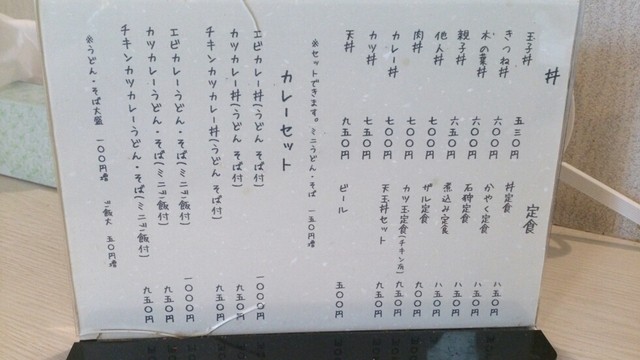 丼
玉子丼 五三〇円
きつね丼 六〇〇円
木の葉丼 六〇〇円
親子丼 六五〇円
他人丼 七〇〇円
肉丼 七〇〇円
カレー丼 七〇〇円
カツ丼 七五〇円
天丼 九五〇円
※セットできます。ミニうどん・そば 一五〇円増
定食
丼定食 八五〇円
かやく定食 八五〇円
石狩定食 八五〇円
煮込み定食 八五〇円
ザル定食 九〇〇円
カツ玉定食(チキン有) 九五〇円
天玉丼セット 九五〇円
ビール 五〇〇円
カレーセット
エビカレー丼(うどん そば付) 一〇〇〇円
カツカレー丼(うどん そば付) 九五〇円
チキンカツカレー丼(うどん そば付) 九五〇円
エビカレーうどん・そば(ミニ飯付) 一〇〇〇円
カツカレーうどん・そば(ミニ飯付) 九五〇円
チキンカツカレーうどん・そば(ミニ飯付) 九五〇円
※うどん・そば大盛 一〇〇円増
飯大 五〇円増